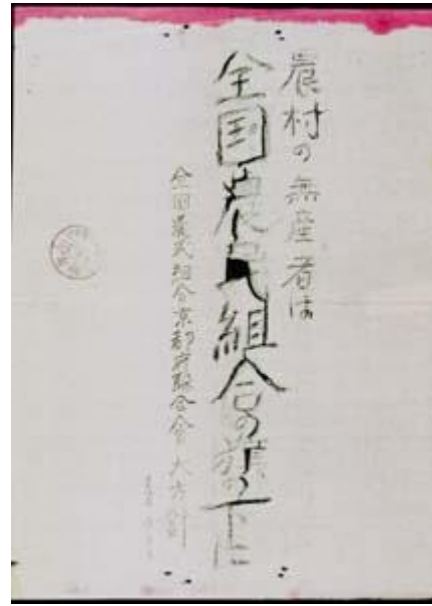 農村の無産者は
全国農民組合の旗の下に
全国農民組合京都府聯合会大方針